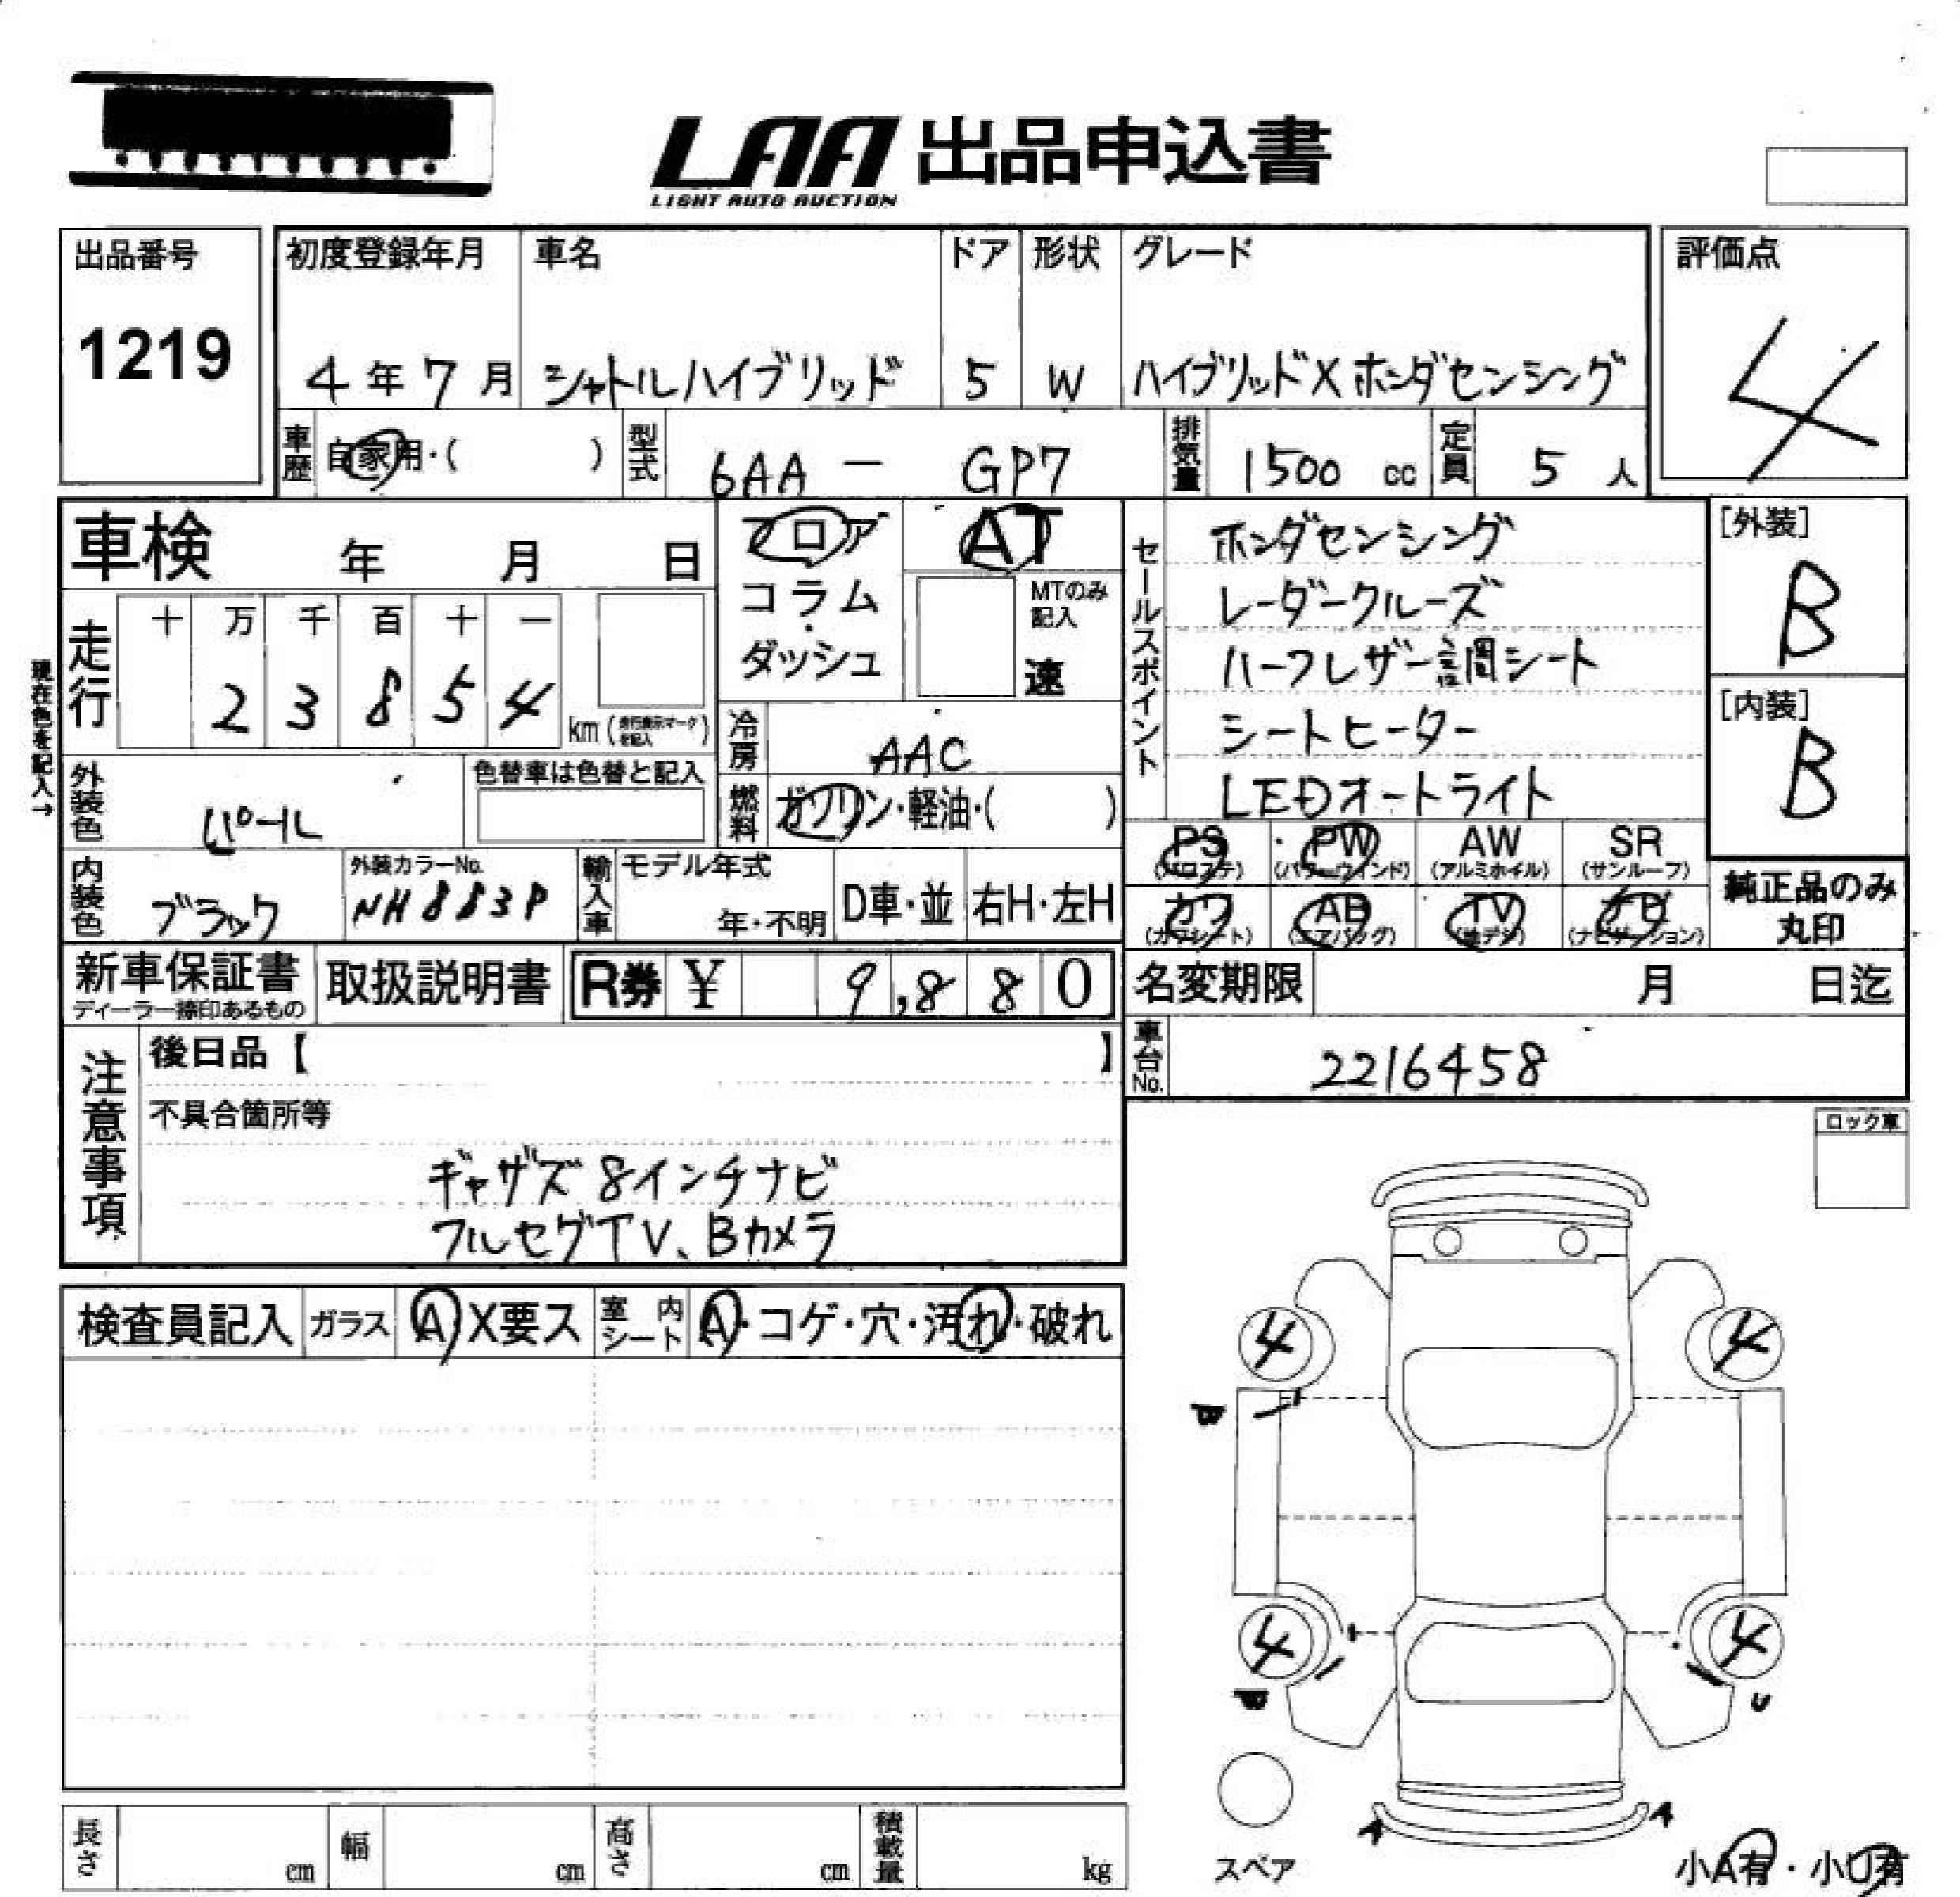 LAA 出品申込書
LIGHT AUTO AUCTION
出品番号
1219
初度登録年月
4年7月
車名
シャトルハイブリッド
ドア
5
形状
W
グレード
ハイブリッドXホンダセンシング
評価点
4
車歴
自家用・( )
型式
6AA - GP7
排気量
1500 cc
定員
5 人
車検 年 月 日
フロア
コラム
・
ダッシュ
AT
MTのみ
記入
速
セールスポイント
ホンダセンシング
レーダークルーズ
ハーフレザー調シート
シートヒーター
LEDオートライト
[外装]
B
[内装]
B
現在色を記入→
走行
十 万 千 百 十 一
2 3 8 5 4
km (走行表示マークを記入)
冷房
AAC
燃料
ガソリン・軽油・( )
外装色
パール
色替車は色替と記入
内装色
ブラック
外装カラーNo.
NH883P
輸入車
モデル年式
年・不明
D車・並
右H・左H
PS
(パワステ)
PW
(パワーウインド)
AW
(アルミホイル)
SR
(サンルーフ)
カワ
(カワシート)
AB
(エアバッグ)
TV
(地デジ)
ナビ
(ナビゲーション)
純正品のみ
丸印
新車保証書
ディーラー捺印あるもの
取扱説明書
R券 ¥ 9,880
名変期限 月 日迄
車台No.
2216458
注意事項
後日品【 】
不具合箇所等
ギャザズ8インチナビ
フルセグTV、Bカメラ
ロック車
検査員記入
ガラス
A X要ス
室内シート
A・コゲ・穴・汚れ・破れ
4
4
4
4
U
A
A
スペア
小A有・小U有
長さ cm
幅 cm
高さ cm
積載量 kg